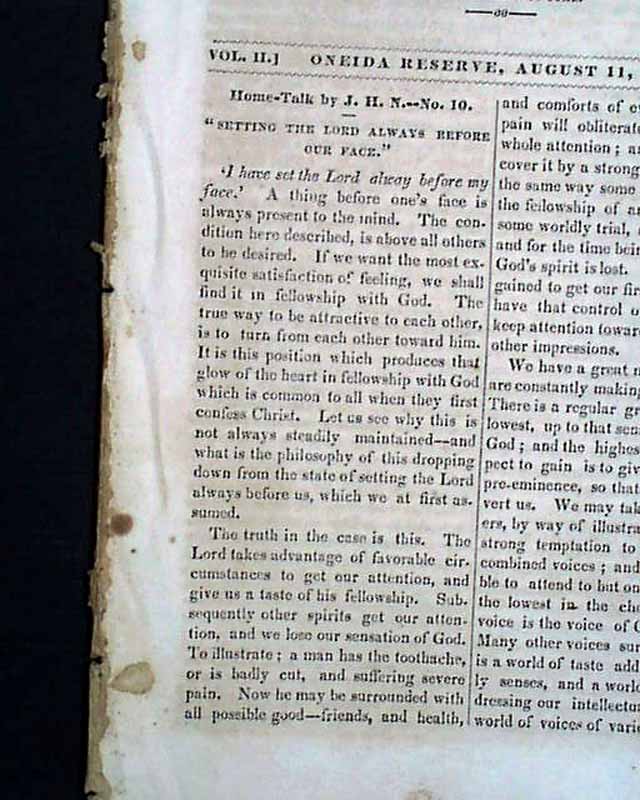 VOL. II.] ONEIDA RESERVE, AUGUST 11,
Home-Talk by J. H. N.--No. 10.
"SETTING THE LORD ALWAYS BEFORE
OUR FACE."
'I have set the Lord alway before my
face.' A thing before one's face is
always present to the mind. The con-
dition here described, is above all others
to be desired. If we want the most ex-
quisite satisfaction of feeling, we shall
find it in fellowship with God. The
true way to be attractive to each other,
is to turn from each other toward him.
It is this position which produces that
glow of the heart in fellowship with God
which is common to all when they first
confess Christ. Let us see why this is
not always steadily maintained—and
what is the philosophy of this dropping
down from the state of setting the Lord
always before us, which we at first as-
sumed.
The truth in the case is this. The
Lord takes advantage of favorable cir-
cumstances to get our attention, and
give us a taste of his fellowship. Sub-
sequently other spirits get our atten-
tion, and we lose our sensation of God.
To illustrate; a man has the toothache,
or is badly cut, and suffering severe
pain. Now he may be surrounded with
all possible good—friends, and health,
and comforts of
pain will obliterat
whole attention; a
cover it by a strong
the same way some
the fellowship of a
some worldly trial,
and for the time bei
God's spirit is lost.
gained to get our fir
have that control o
keep attention towar
other impressions.
We have a great
are constantly makin
There is a regular gr
lowest, up to that sen
God; and the highes
pect to gain is to giv
pre-eminence, so that
vert us. We may tak
ers, by way of illustra
strong temptation to
combined voices; and
ble to attend to but on
the lowest in the
voice is the voice of
Many other voices sur
is a world of taste add
ly senses, and a world
dressing our intellectu
world of voices of varie